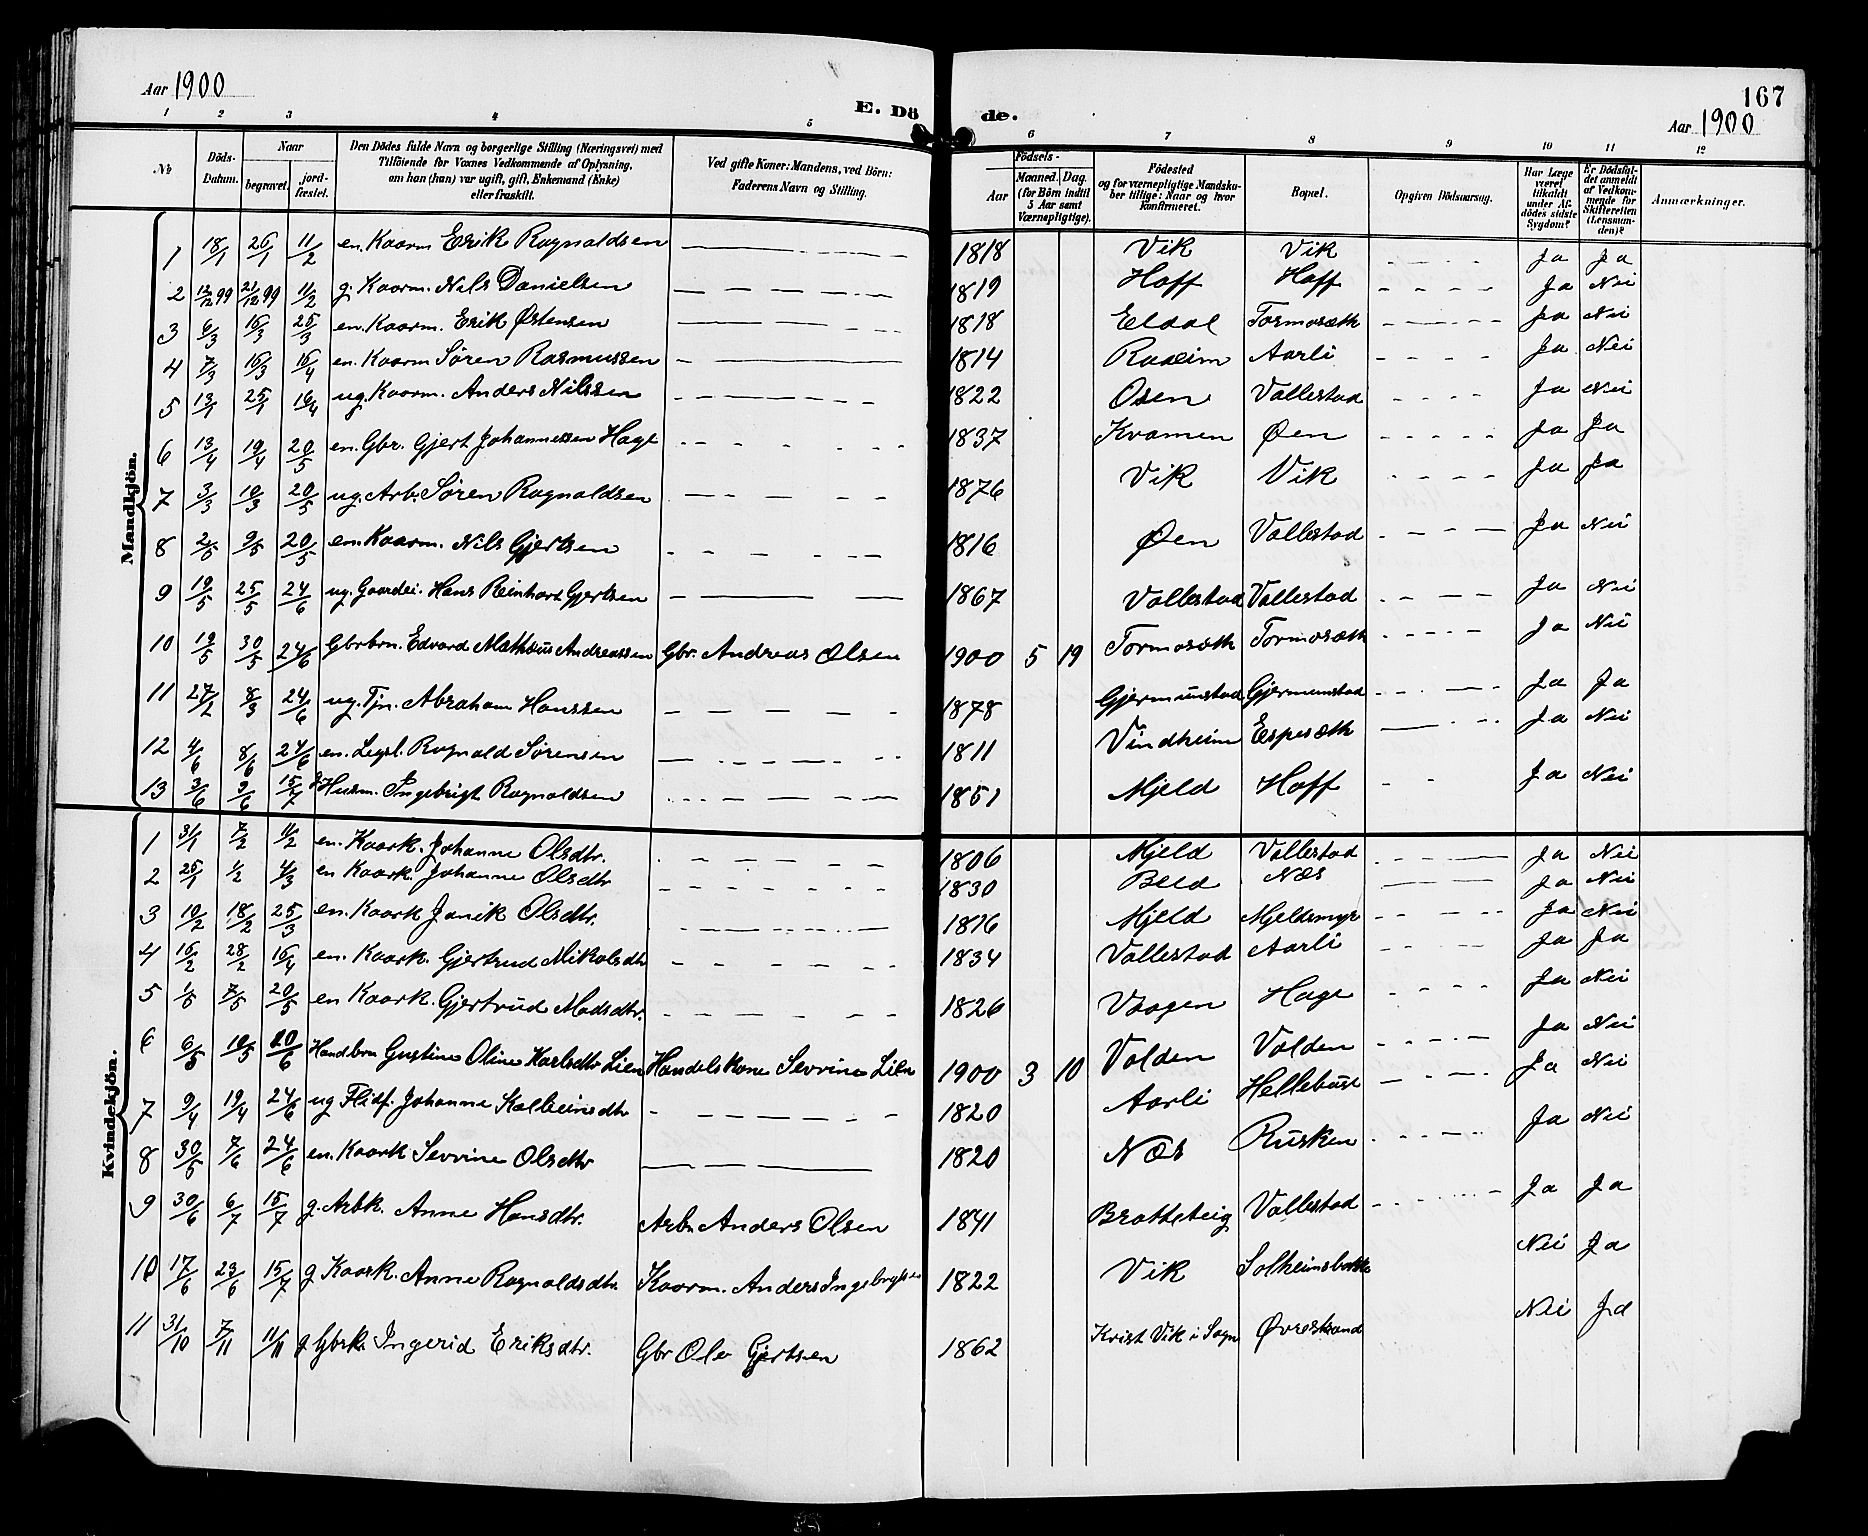 Aar 1900 E. Döde. 167
Aar 1900
1 2 3 4 5 6 7 8 9 10 11 12
№ Döds-Datum. Naar begravet. jordfæstet. Den Dödes fulde Navn og borgerlige Stilling (Næringsvei) med Tilföiende for Voxnes Vedkommende af Oplysning, om han (hun) var ugift, gift, Enkemand (Enke) eller fraskilt. Ved gifte Koner: Mandens, ved Börn: Faderens Navn og Stilling. Födsels- Aar Maaned. Dag. (for Börn indtil 5 Aar samt Værnepligtige). Födested og for værnepligtige Mandskaber tillige: Naar og hvor konfirmeret. Bopæl. Opgiven Dödsaarsag. Har Læge været tilkaldt under Afdödes sidste Sygdom? Er Dödsfaldet anmeldt af Vedkommende for Skifteretten (Lensmanden)? Anmærkninger.
Mandkjön.
1 18/1 26/1 11/2 en. Kaarm Erik Ragnaldsen 1818 Vik Vik Ja Ja
2 12/12 99 21/12 99 11/2 g. Kaarm. Nils Danielsen 1819 Hoff Hoff Ja Nei
3 6/3 16/3 25/3 en. Kaarm. Erik Østensen 1818 Eldal Tormosæth Ja Nei
4 7/3 16/3 16/4 en. Kaarm Søren Rasmussen 1814 Raaeim Aarli Ja Nei
5 13/1 25/1 16/4 ug. Kaarm. Anders Nilssen 1822 Osen Vallestad Ja Nei
6 13/4 19/4 20/5 en. Gbr. Gjert Johannessen Hage 1837 Kvamen Øen Ja Ja
7 3/3 10/3 20/5 ug. Arb. Søren Ragnaldsen 1876 Vik Vik Ja Ja
8 2/5 9/5 20/5 en. Kaarm. Nils Gjertsen 1816 Øen Vallestad Ja Nei
9 19/5 25/5 24/6 ug. Gaardei. Hans Reinhart Gjertsen 1867 Vallestad Vallestad Ja Nei
10 19/5 30/5 24/6 Gbrbrn. Edvard Mathæus Andreassen Gbr. Andreas Olsen 1900 5 19 Tormosæth Tormosæth Ja Nei
11 27/2 8/3 24/6 ug. Tjn. Abraham Hanssen 1878 Gjermunstad Gjermunstad Ja Ja
12 4/6 8/6 24/6 en. Legsl. Ragnald Sørensen 1811 Vindheim Espesæth Ja Nei
13 3/6 9/6 15/7 g. Husm. Ingebrigt Ragnaldsen 1851 Mjeld Hoff Ja Nei
Kvindekjön.
1 31/1 7/2 11/2 en. Kaark. Johanne Olsdtr. 1806 Mjeld Vallestad Ja Nei
2 25/1 1/2 4/3 en Kaark. Johanne Olsdtr 1830 Næs Ja Nei
3 10/2 18/2 25/3 en. Kaark Janik Olsdtr. 1816 Mjeld Mjeldsmyr Ja Nei
4 16/2 28/2 16/4 en. Kaark. Gjertrud Mikalsdtr 1834 Vallestad Aarli Ja Ja
5 1/5 7/5 20/5 en Kaark. Gjertrud Madsdtr. 1826 Vaagen Hage Ja Nei
6 6/5 10/5 20/6 Handlbrn Gustine Oline Karlsdtr Lien Handelskone Sevrine Lien 1900 3 10 Valden Valden Ja Nei
7 9/4 19/4 24/6 ug Flidf. Johanne Kolbeinsdtr 1820 Aarli Hellebust Ja Nei
8 30/5 7/6 24/6 en. Kaark Sevrine Olsdtr 1820 Næs Rusken Ja Nei
9 30/6 6/7 15/7 g. Arbk. Anne Hansdtr. Arb. Anders Olsen 1841 Bratteteig Vallestad Ja Ja
10 17/6 23/6 15/7 g Kaark. Anne Ragnaldsdtr. Kaarm. Anders Ingebrigtsen 1822 Vik Solheimsbakke Nei Ja
11 31/10 7/11 11/11 g Gbrk. Ingerid Eriksdtr. Gbr Ole Gjertsen 1862 Krist Vik i Sogn Øvrestrand Nei Ja